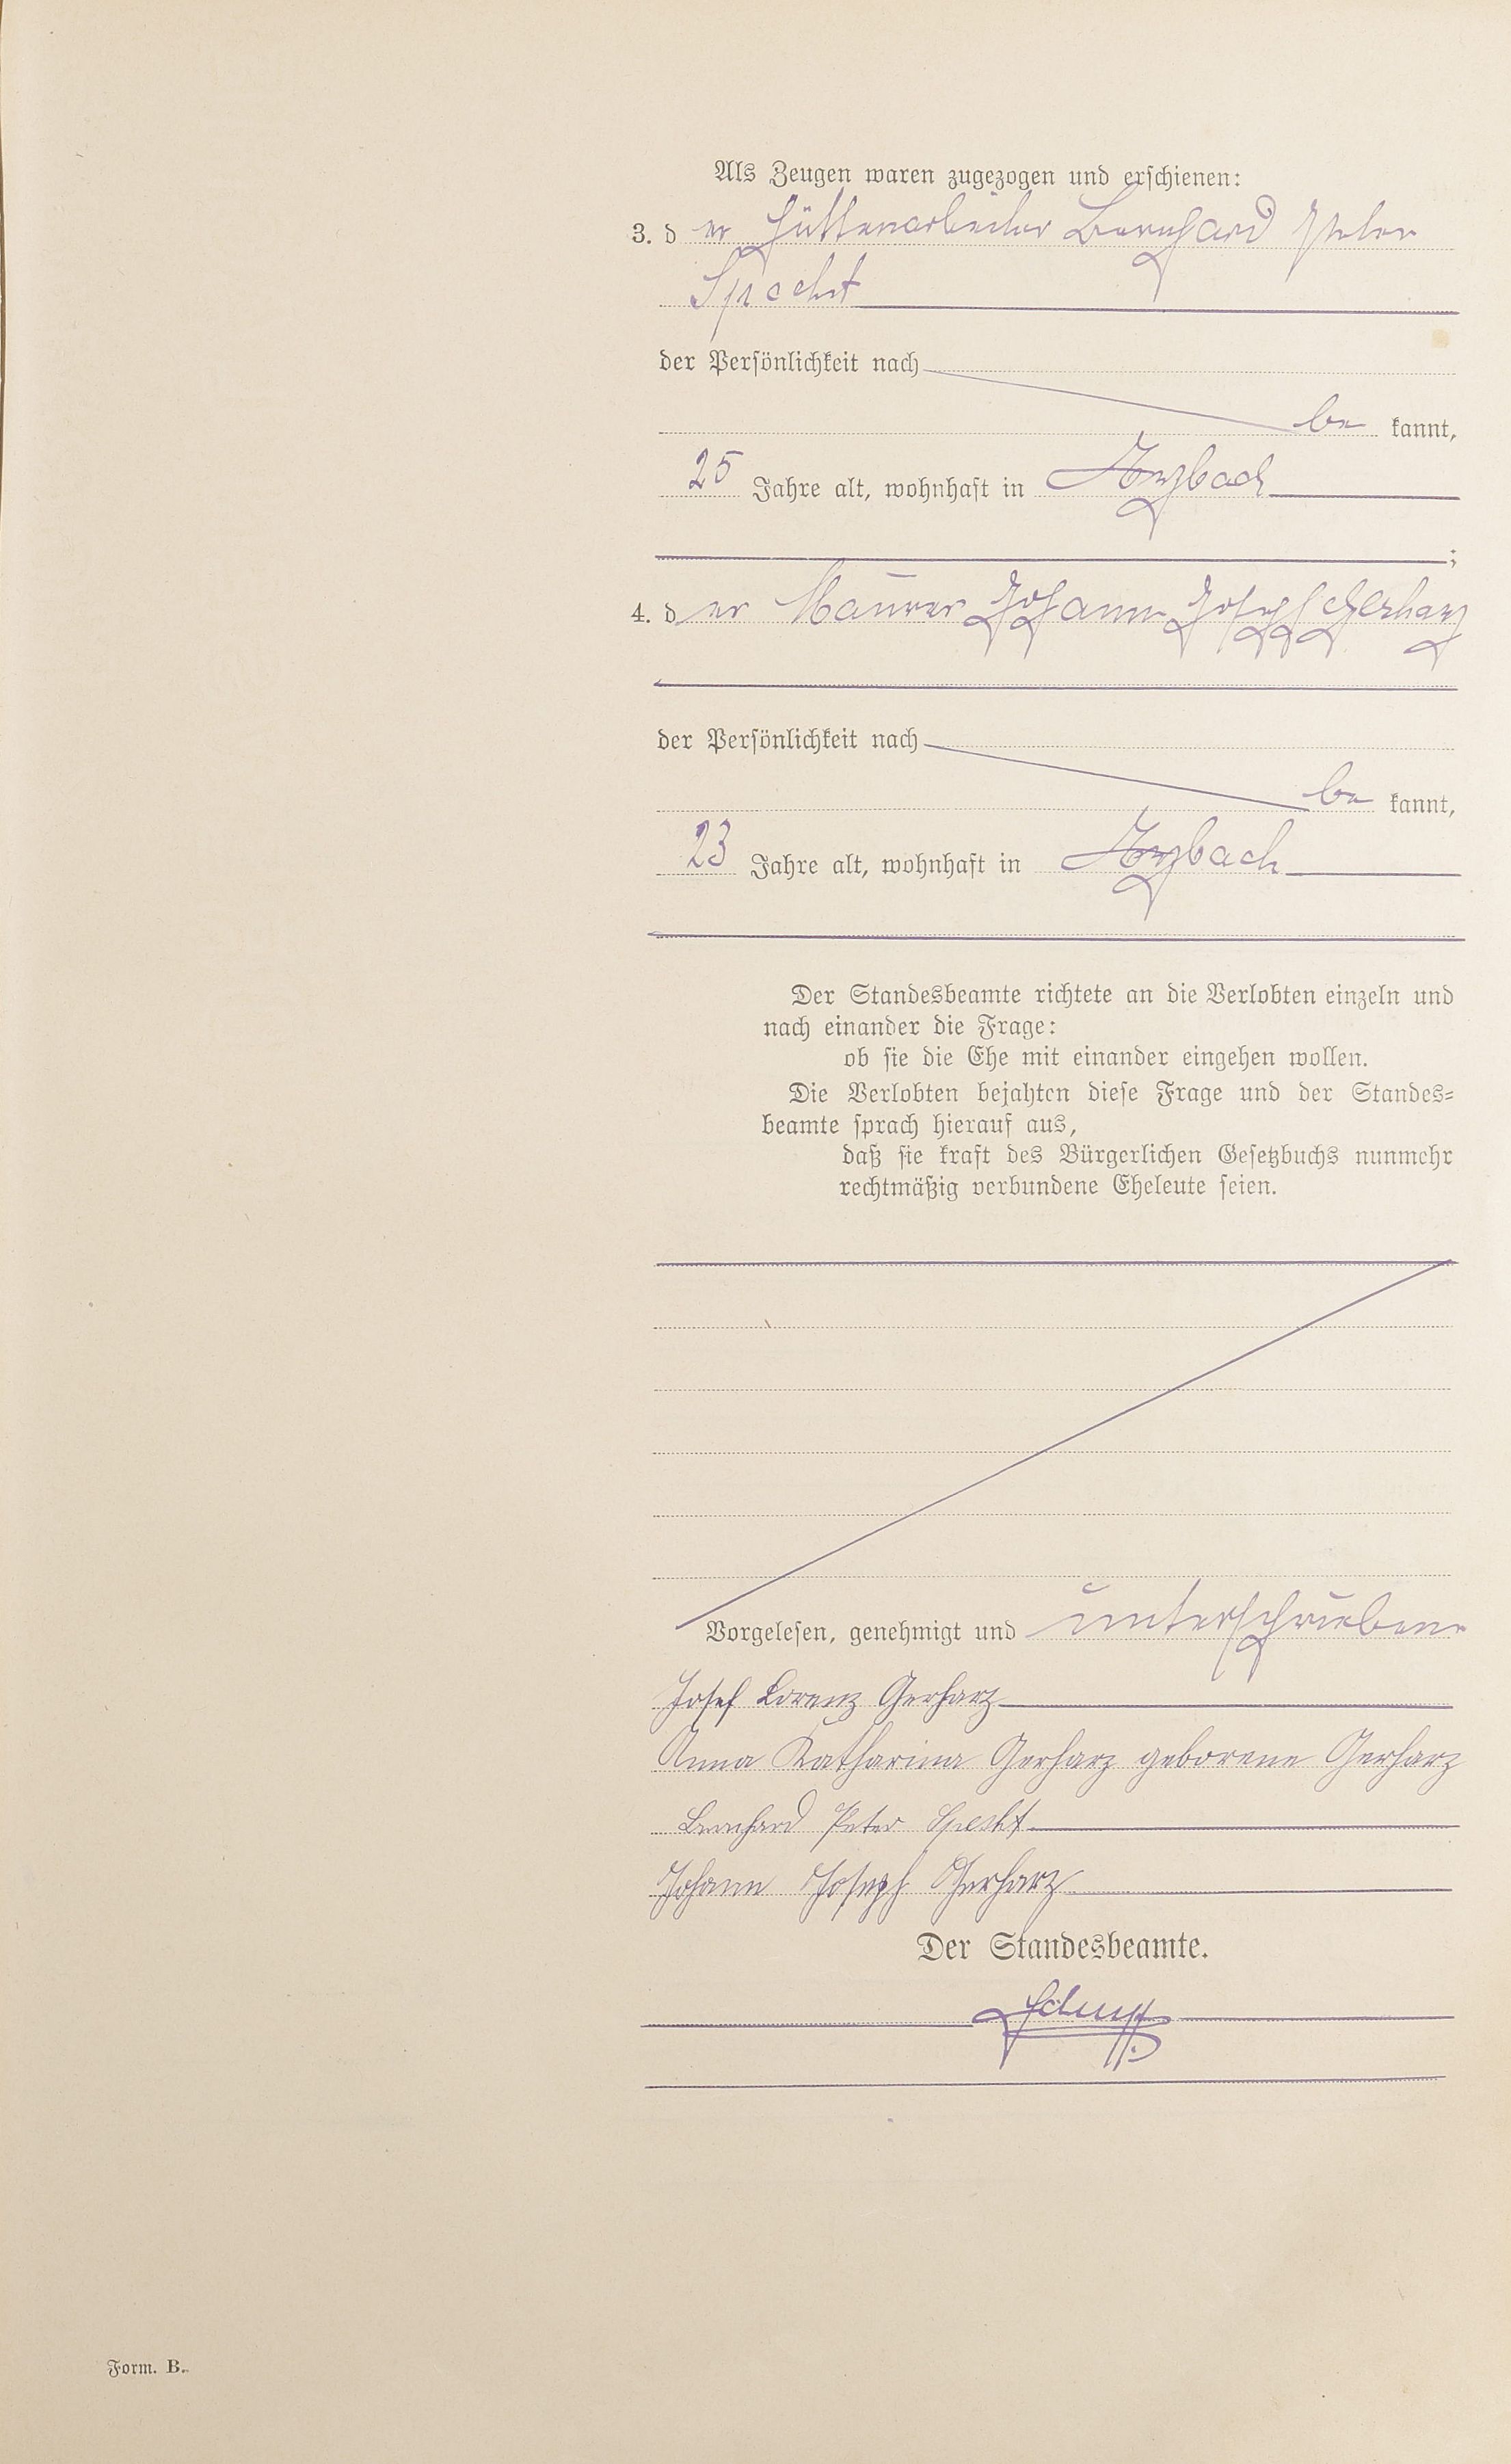 Als Zeugen waren zugezogen und erschienen:
3. der Hüttenarbeiter Bernhard Peter
Specht
der Persönlichkeit nach
be kannt,
25 Jahre alt, wohnhaft in Arzbach
;
4. der Maurer Johann Joseph Gerharz
der Persönlichkeit nach
be kannt,
23 Jahre alt, wohnhaft in Arzbach
Der Standesbeamte richtete an die Verlobten einzeln und
nach einander die Frage:
ob sie die Ehe mit einander eingehen wollen.
Die Verlobten bejahten diese Frage und der Standes-
beamte sprach hierauf aus,
daß sie kraft des Bürgerlichen Gesetzbuchs nunmehr
rechtmäßig verbundene Eheleute seien.
Vorgelesen, genehmigt und unterschrieben
Josef Lorenz Gerharz
Anna Katharina Gerharz geborene Gerharz
Bernhard Peter Specht
Johann Joseph Gerharz
Der Standesbeamte.
Form. B.